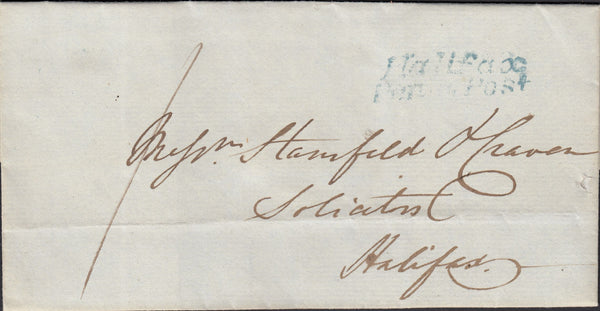 Halifax
Penny Post
1
Messrs. Stansfeld & Craven
Solicitors
Halifax.